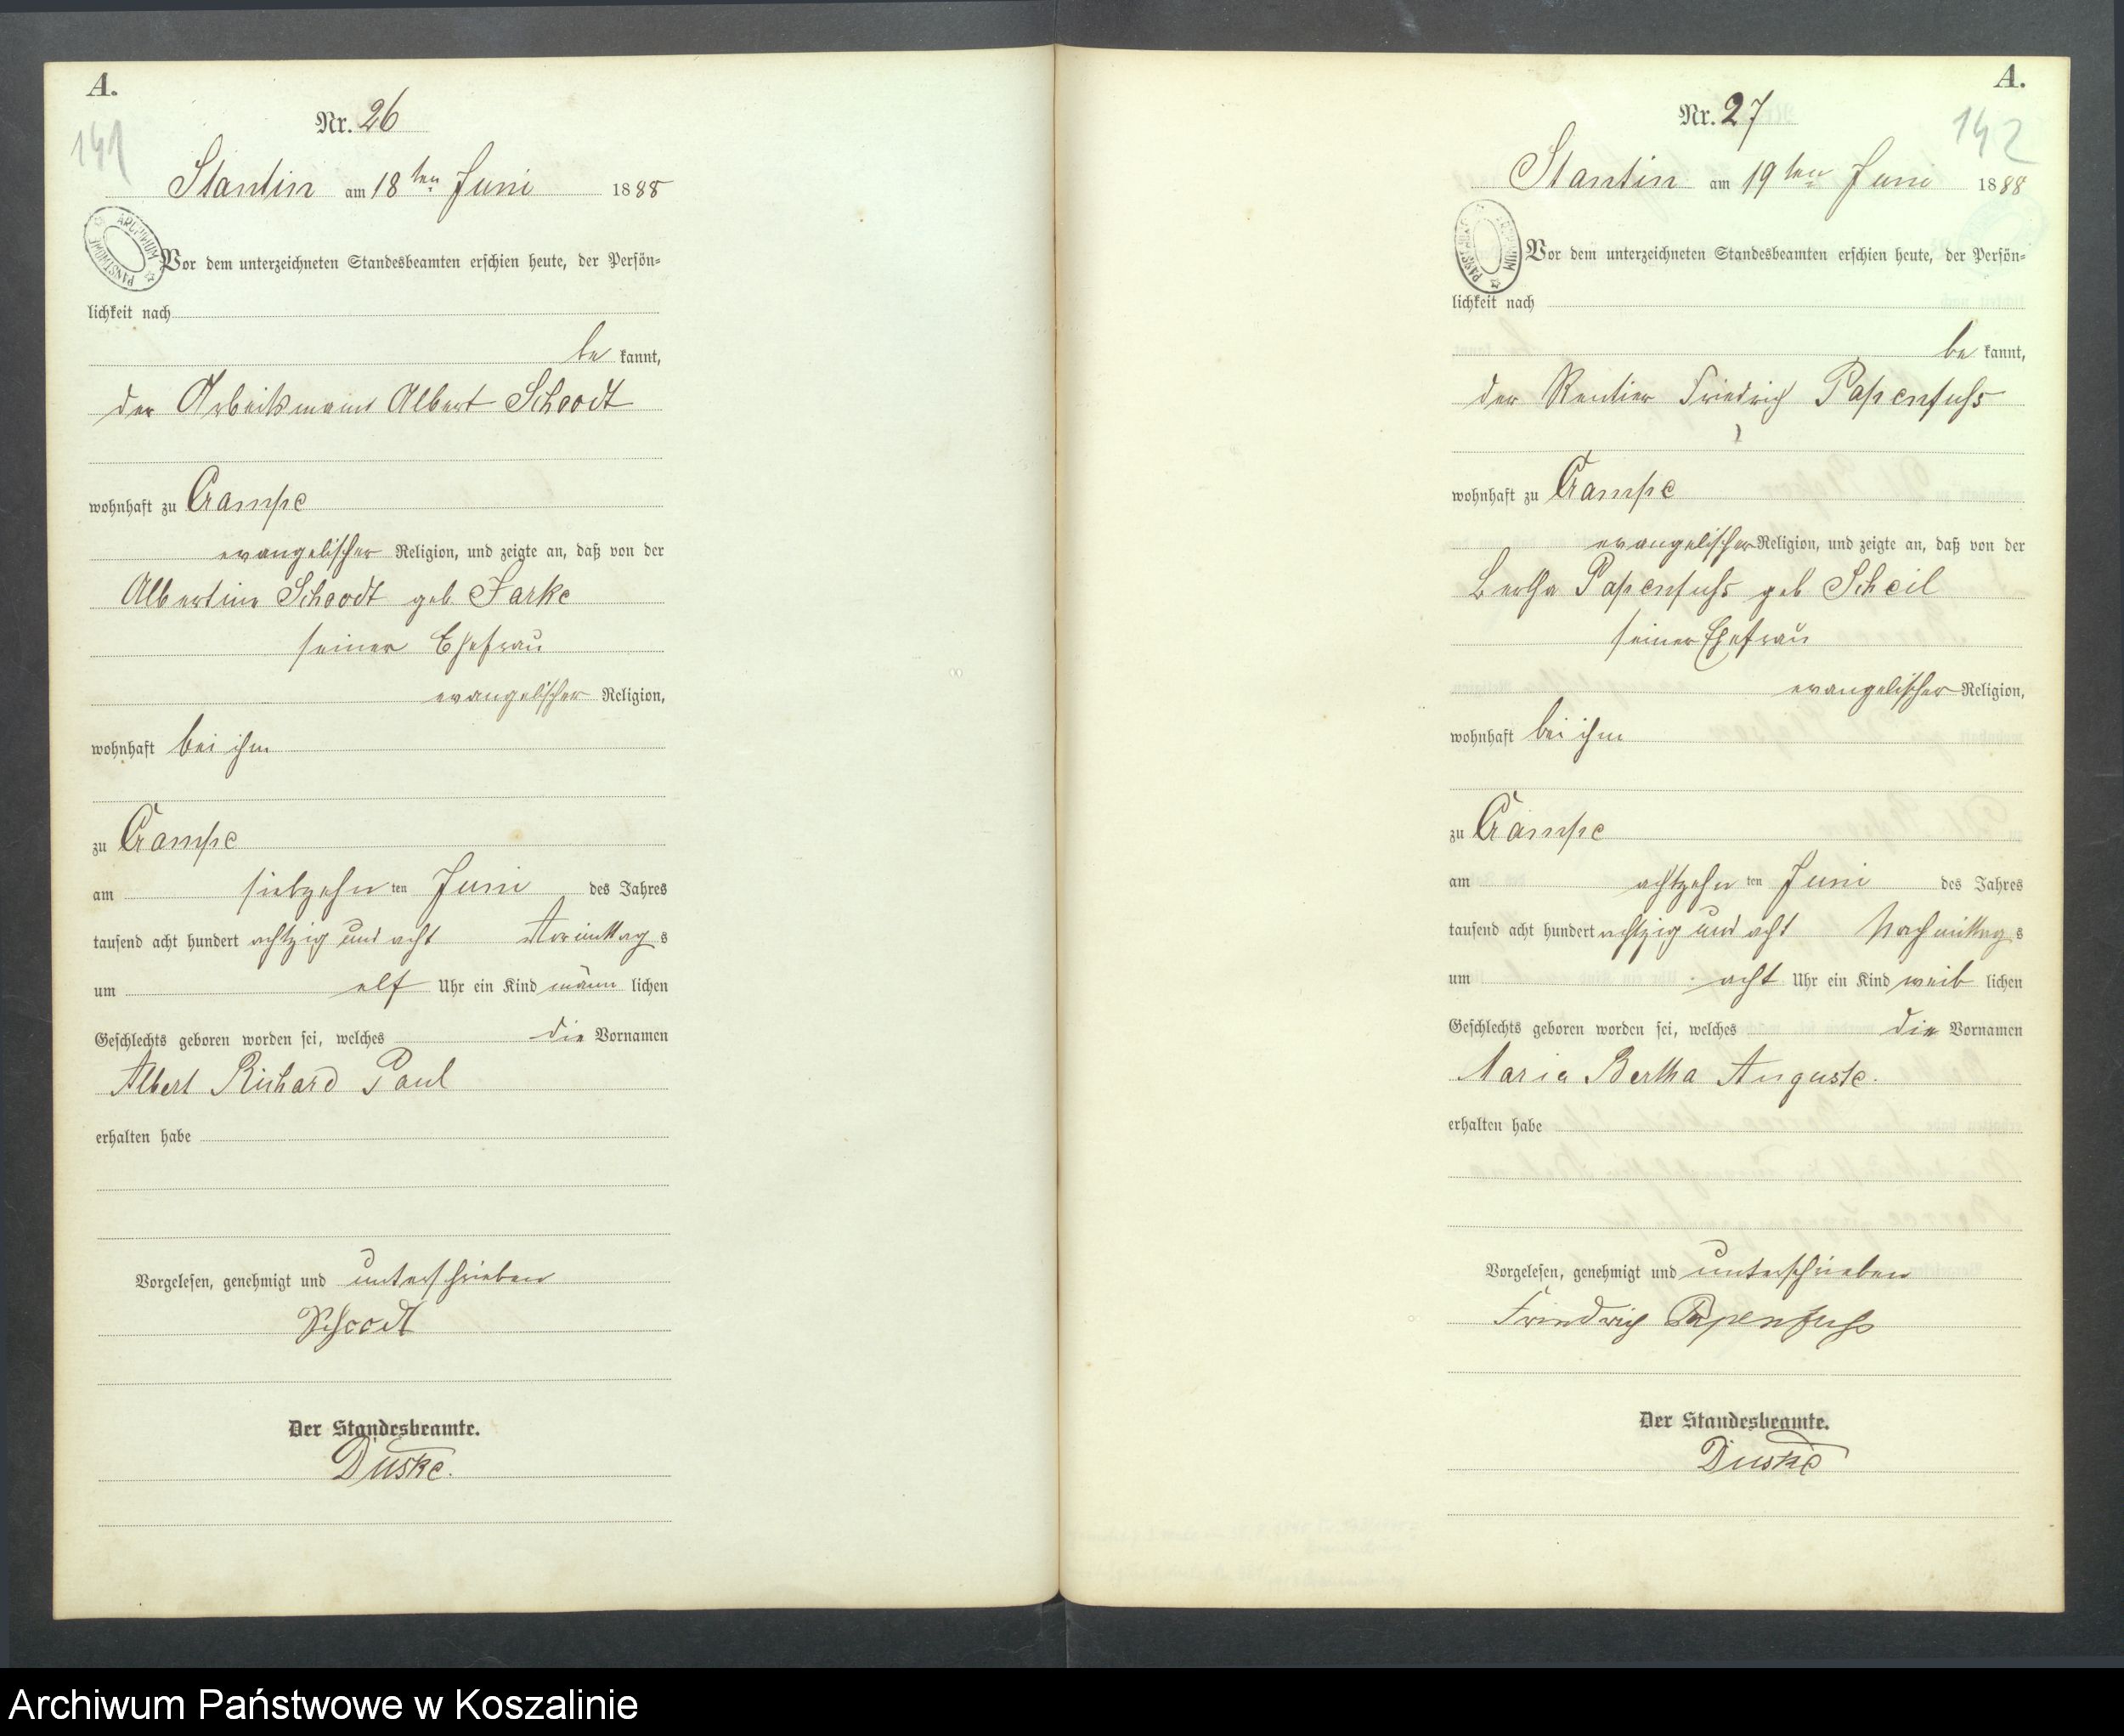 A.
141
Nr. 26
Stantin am 18ten Juni 1888
ARCHIWUM PAŃSTWOWE
Vor dem unterzeichneten Standesbeamten erschien heute, der Persön=
lichkeit nach
be kannt,
der Arbeitsmann Albert Schoodt
wohnhaft zu Crampe
evangelischer Religion, und zeigte an, daß von der
Albertine Schoodt geb. Farke
seiner Ehefrau
evangelischer Religion,
wohnhaft bei ihm
zu Crampe
am siebzehn ten Juni des Jahres
tausend acht hundert achtzig und acht Vormittag s
um elf Uhr ein Kind männ lichen
Geschlechts geboren worden sei, welches die Vornamen
Albert Richard Paul
erhalten habe
Vorgelesen, genehmigt und unterschrieben
Schoodt
Der Standesbeamte.
Duske.
A.
142
Nr. 27
Stantin am 19ten Juni 1888
ARCHIWUM PAŃSTWOWE
Vor dem unterzeichneten Standesbeamten erschien heute, der Persön=
lichkeit nach
be kannt,
der Rentier Friedrich Papenfuhs
wohnhaft zu Crampe
evangelischer Religion, und zeigte an, daß von der
Bertha Papenfuhs geb Scheil
seiner Ehefrau
evangelischer Religion,
wohnhaft bei ihm
zu Crampe
am achtzehn ten Juni des Jahres
tausend acht hundert achtzig und acht Nachmittag s
um acht Uhr ein Kind weib lichen
Geschlechts geboren worden sei, welches die Vornamen
Maria Bertha Auguste.
erhalten habe
Vorgelesen, genehmigt und unterschrieben
Friedrich Papenfuhs
Der Standesbeamte.
Duske
Archiwum Państwowe w Koszalinie